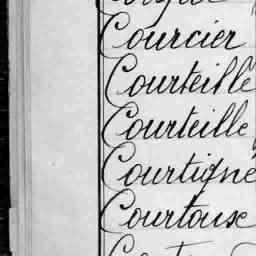 Courcier
Courteille
Courteille
Courtigné
Courtoux